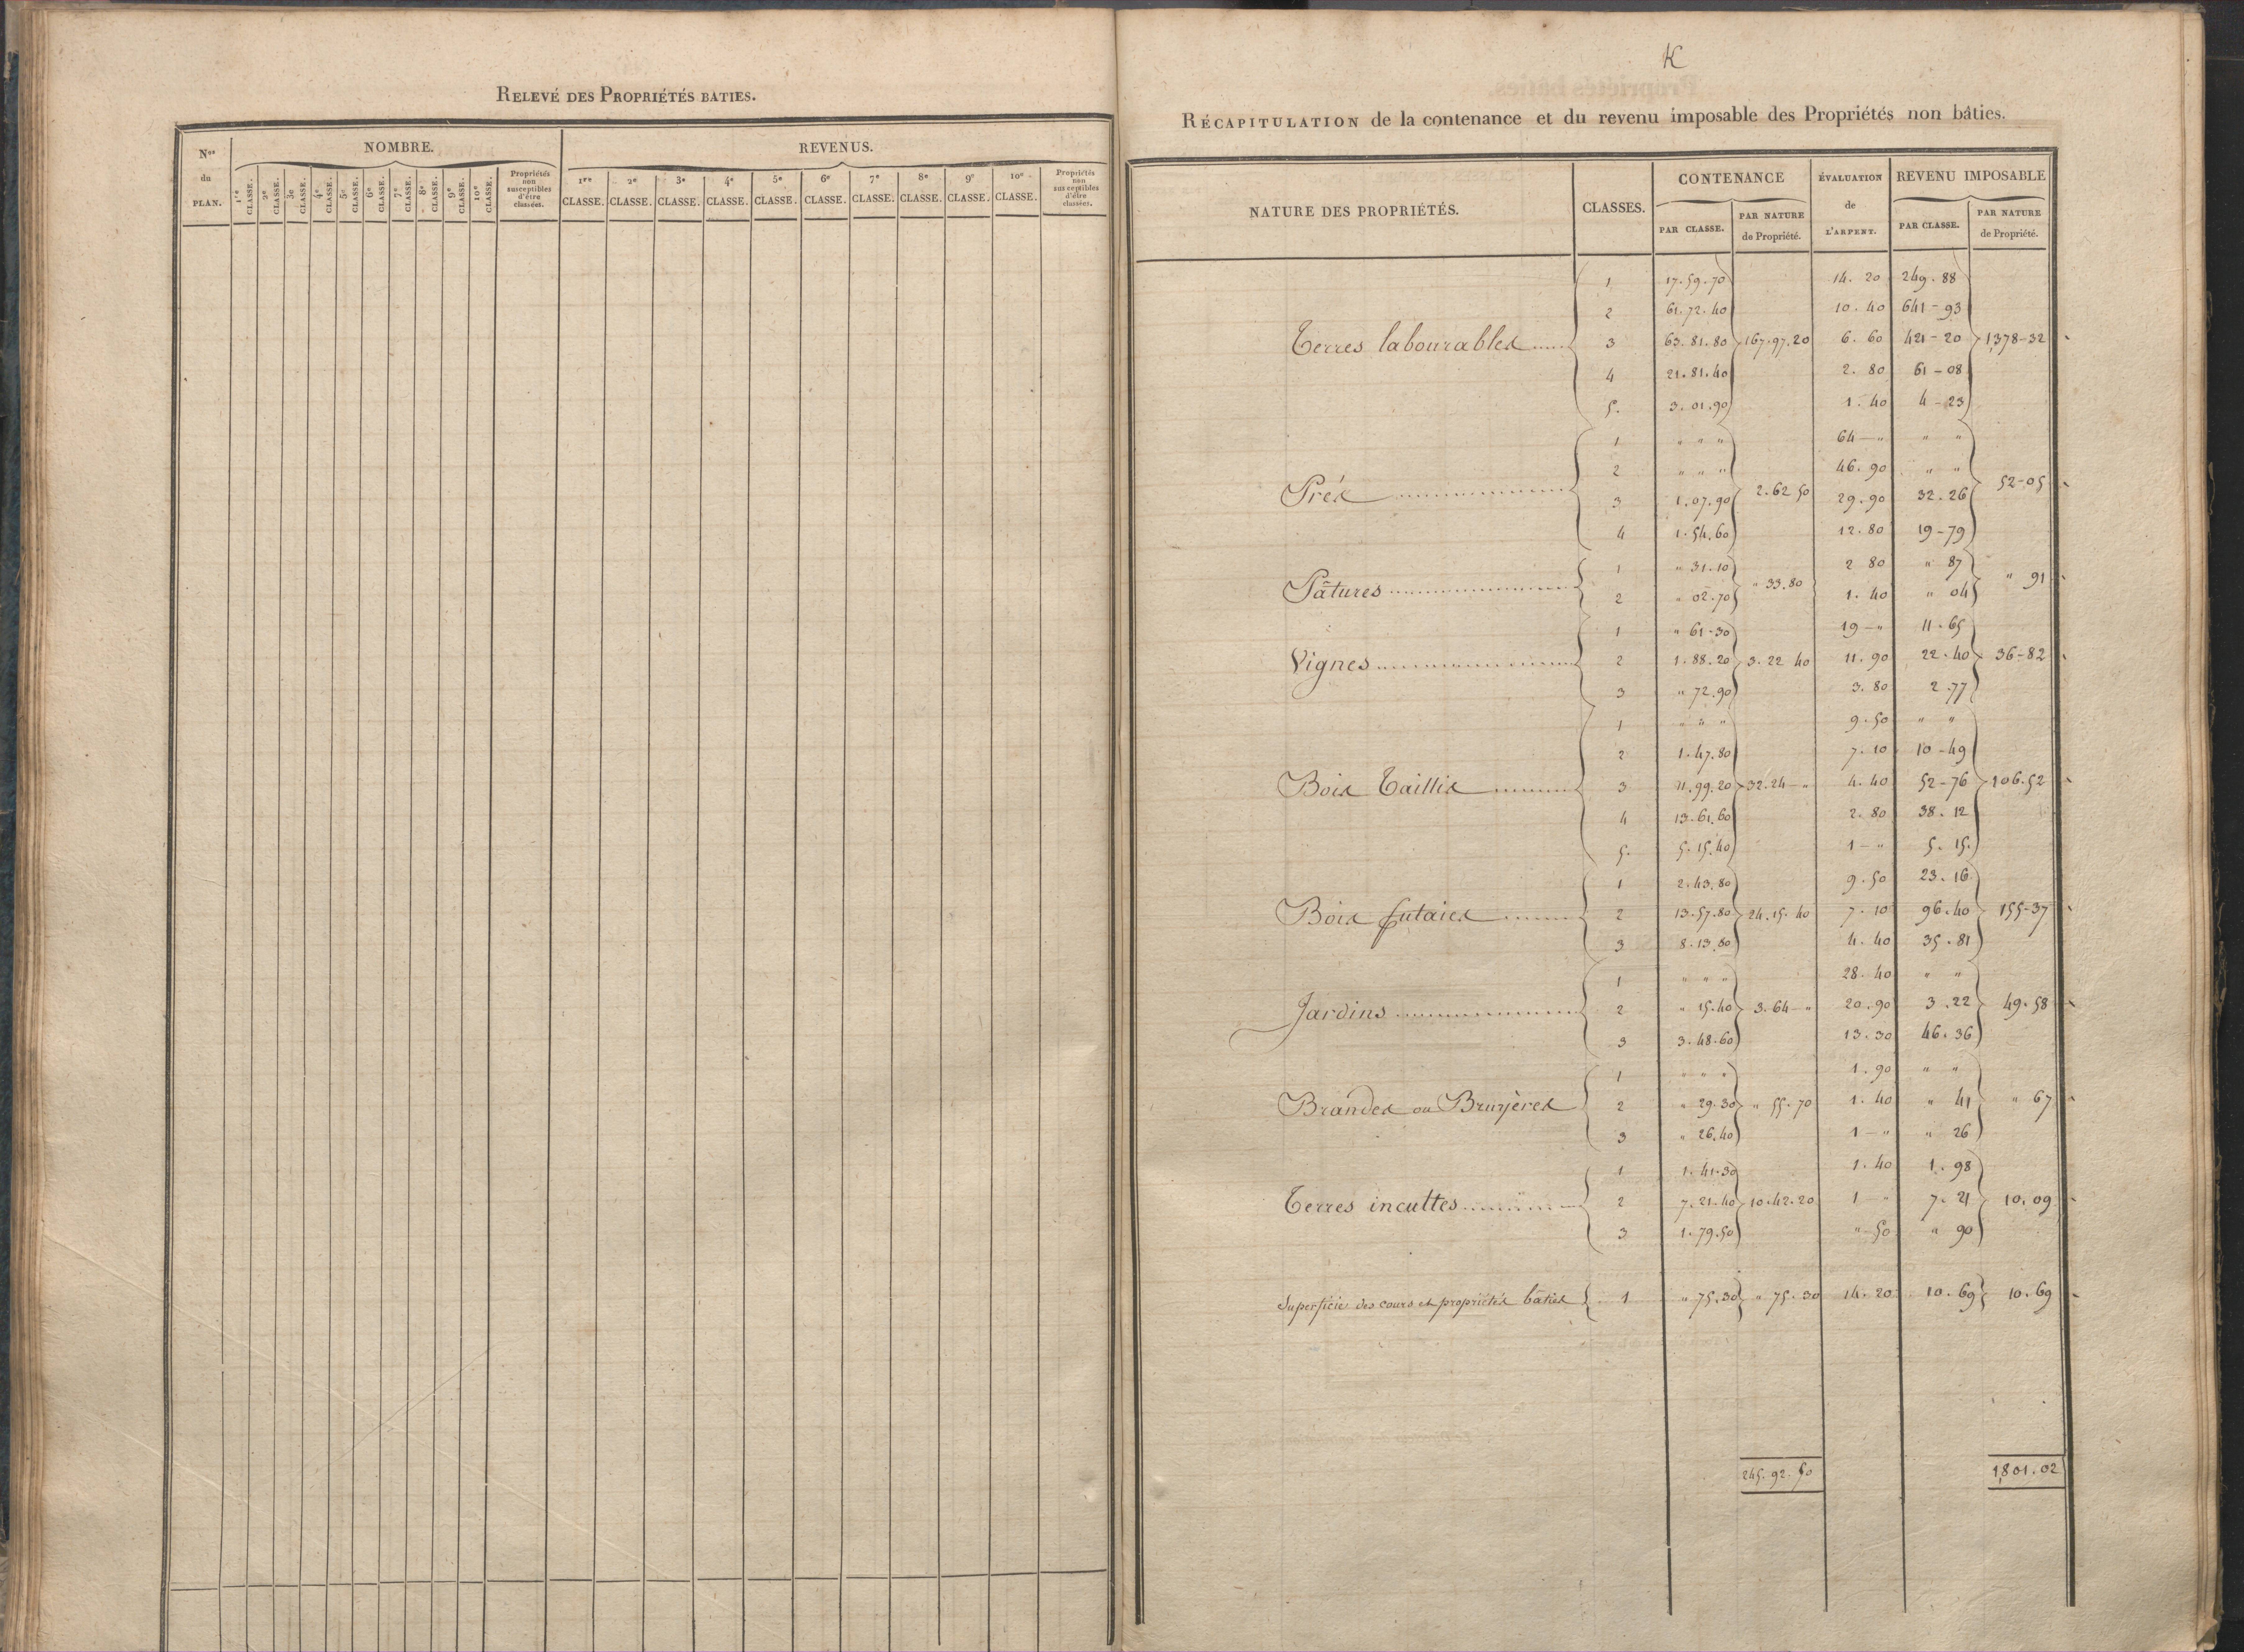 RELEVÉ DES PROPRIÉTÉS BATIES.
Nos du PLAN.
NOMBRE.
1re CLASSE. 2e CLASSE. 3e CLASSE. 4e CLASSE. 5e CLASSE. 6e CLASSE. 7e CLASSE. 8e CLASSE. 9e CLASSE. 10e CLASSE. Propriétés non susceptibles d'être classées.
REVENUS.
1re CLASSE. 2e CLASSE. 3e CLASSE. 4e CLASSE. 5e CLASSE. 6e CLASSE. 7e CLASSE. 8e CLASSE. 9e CLASSE. 10e CLASSE. Propriétés non susceptibles d'être classées.
K
RÉCAPITULATION de la contenance et du revenu imposable des Propriétés non bâties.
NATURE DES PROPRIÉTÉS. CLASSES. CONTENANCE ÉVALUATION de L'ARPENT. REVENU IMPOSABLE
PAR CLASSE. PAR NATURE de Propriété. PAR CLASSE. PAR NATURE de Propriété.
1 17.59.70 14.20 249.88
2 61.72.40 10.40 641-93
Terres labourables 3 63.81.80 167.97.20 6.60 421-20 1,378-32
4 21.81.40 2.80 61-08
5. 3.01.90 1.40 4-23
1 " " " 64-" " "
2 " " " 46.90 " "
Prés 3 1.07.90 2.62 50 29.90 32.26 52-05
4 1.54.60 12.80 19-79
1 " 31.10 2 80 " 87
Pâtures 2 " 02.70 " 33.80 1.40 " 04 " 91
1 " 61-30 19-" 11.65
Vignes 2 1.88.20 3.22 40 11.90 22.40 36-82
3 " 72.90 3.80 2.77
1 " " " 9.50 " "
2 1.47.80 7.10 10-49
Bois Taillis 3 11.99.20 32.24-" 4.40 52-76 106.52
4 13.61.60 2.80 38.12
5. 5.15.40 1-" 5.15.
1 2.43.80 9.50 23.16
Bois futaies 2 13.57.80 24.15.40 7.10 96.40 155-37
3 8.13.80 4.40 35.81
1 " " " 28.40 " "
Jardins 2 " 15.40 3.64-" 20.90 3.22 49.58
3 3.48.60 13.30 46.36
1 " " " 1.90 " "
Brandes ou Bruyères 2 " 29.30 " 55.70 1.40 " 41 " 67
3 " 26.40 1-" " 26
1 1.41.30 1.40 1.98
Terres incultes 2 7.21.40 10.42.20 1 " 7.21 10.09
3 1.79.50 "-50 " 90
Superficie des cours et propriétés bâties 1 " 75.30 " 75.30 14.20 10.69 10.69
245.92.50 1,801.02